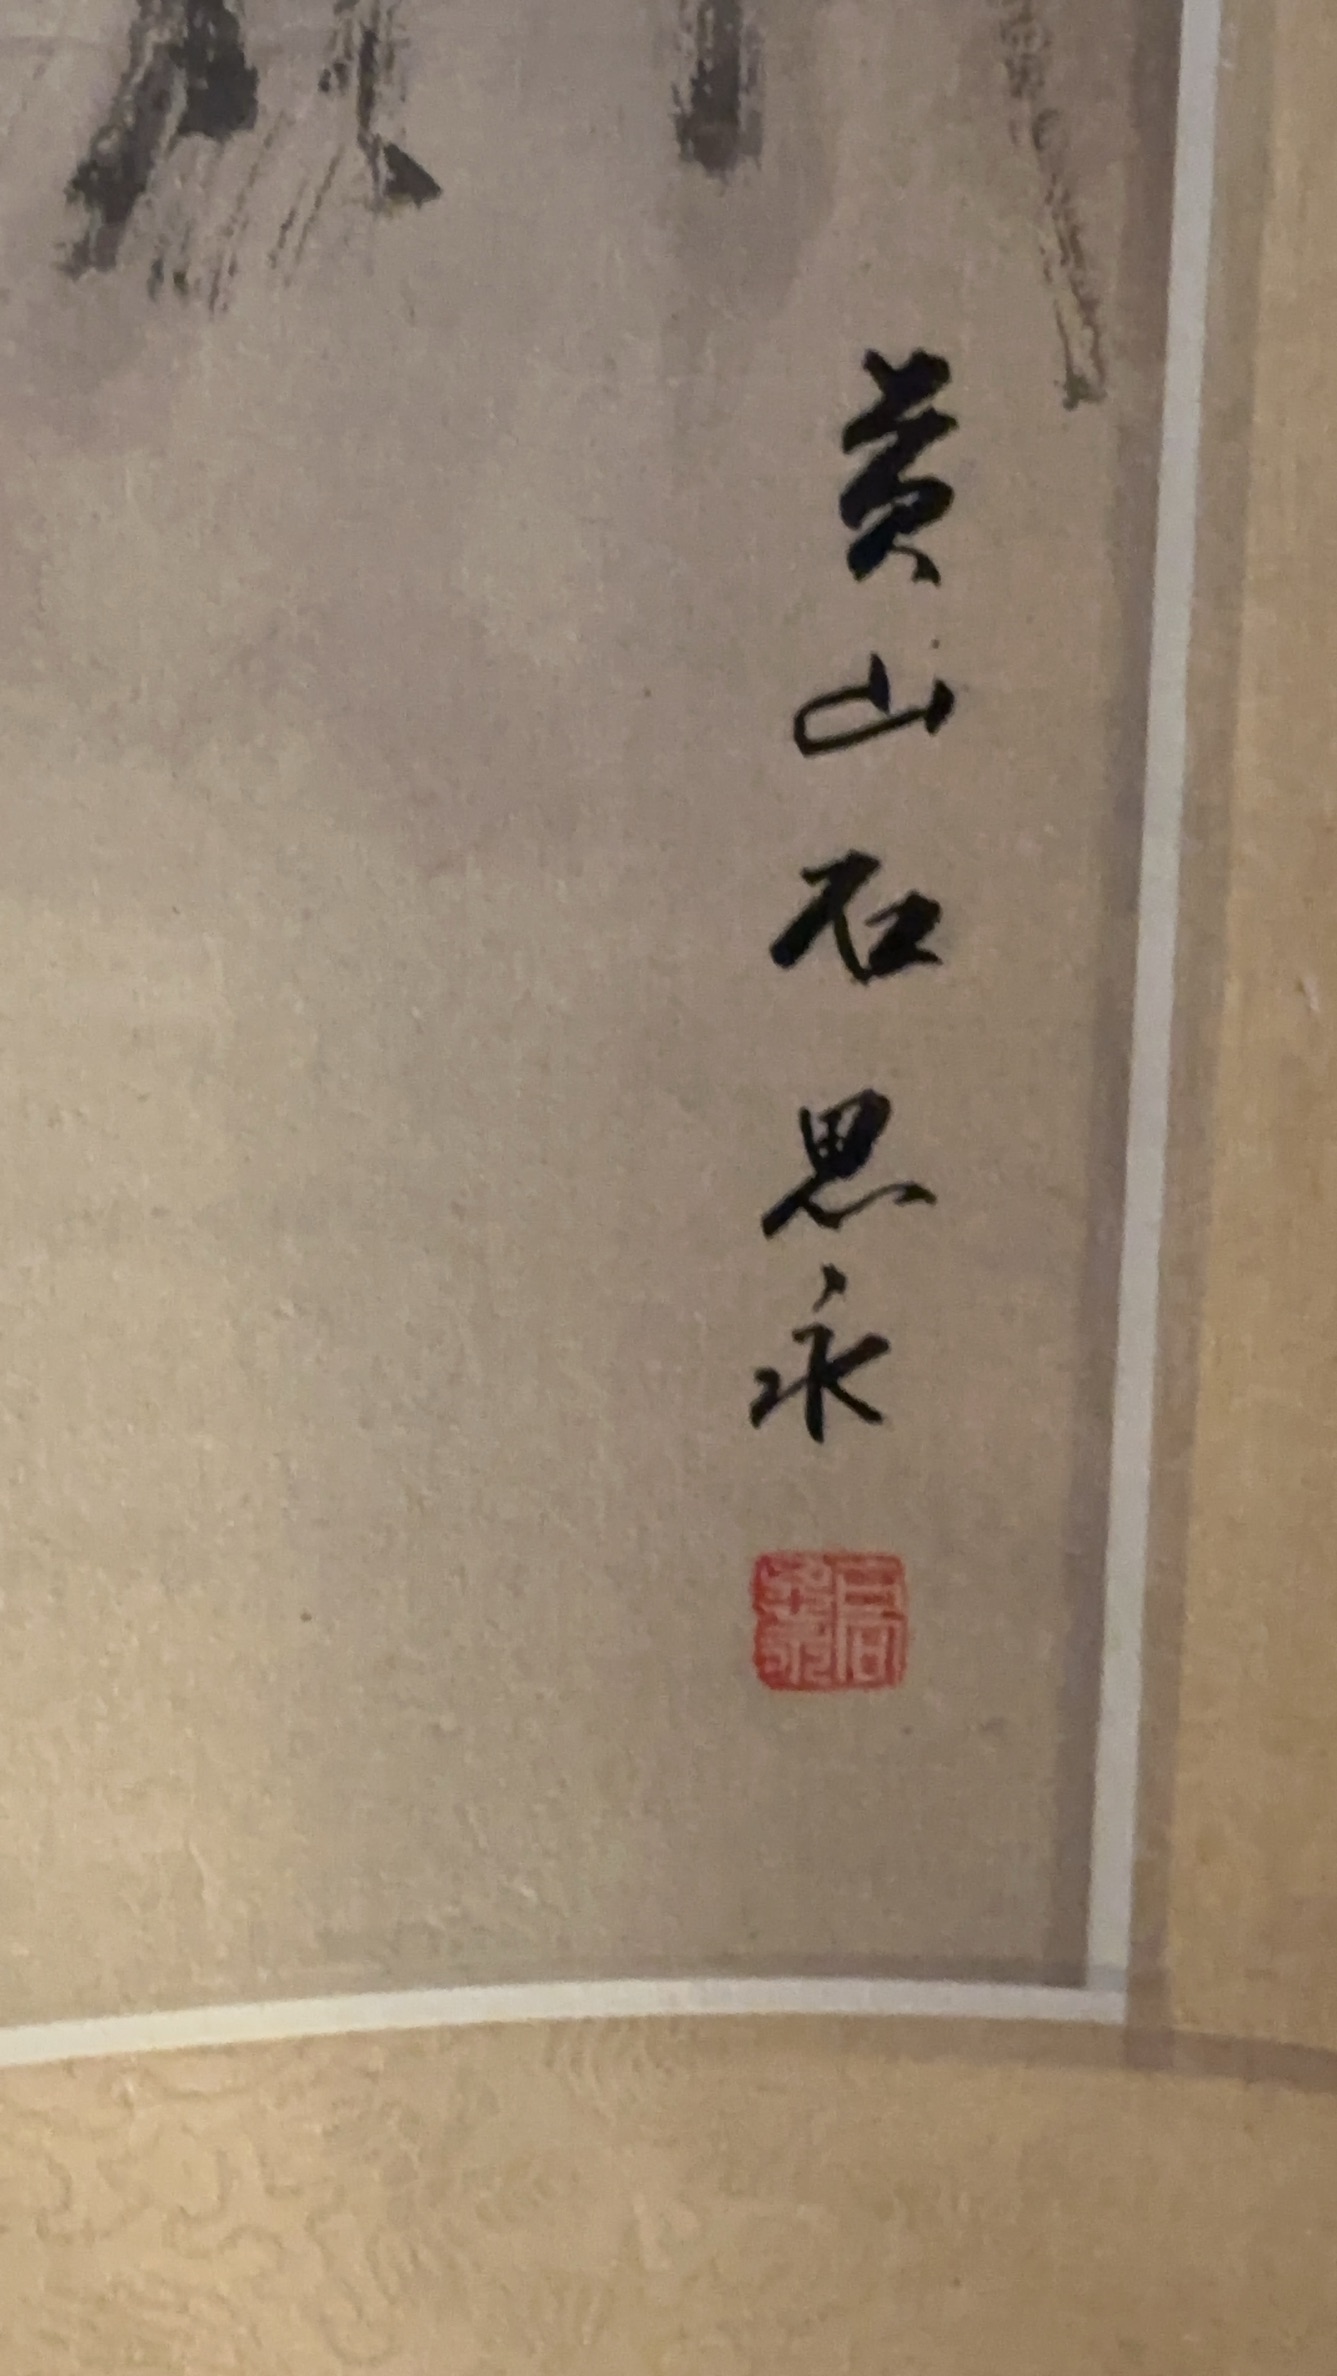 黄山石思永